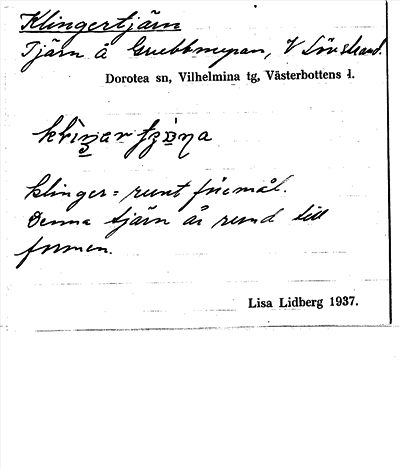 Klingertjärn
Tjärn å Grubbmyran, V Lövstrand.
Dorotea sn, Vilhelmina tg, Västerbottens l.
klinger = runt föremål.
Denna tjärn är rund till
formen.
Lisa Lidberg 1937.